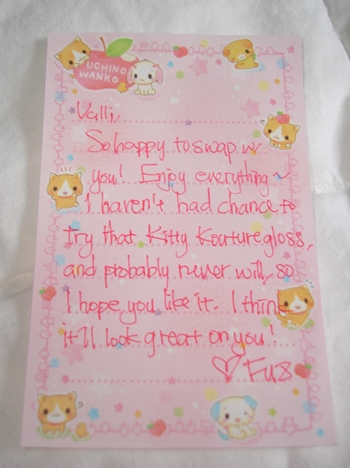 UCHINO
WANKO
Valli,
So happy to swap w/
you! Enjoy everything ~
I haven't had chance to
try that Kitty Kouture gloss,
and probably never will, so
I hope you like it. I think
it'll look great on you!
♡ Fuz